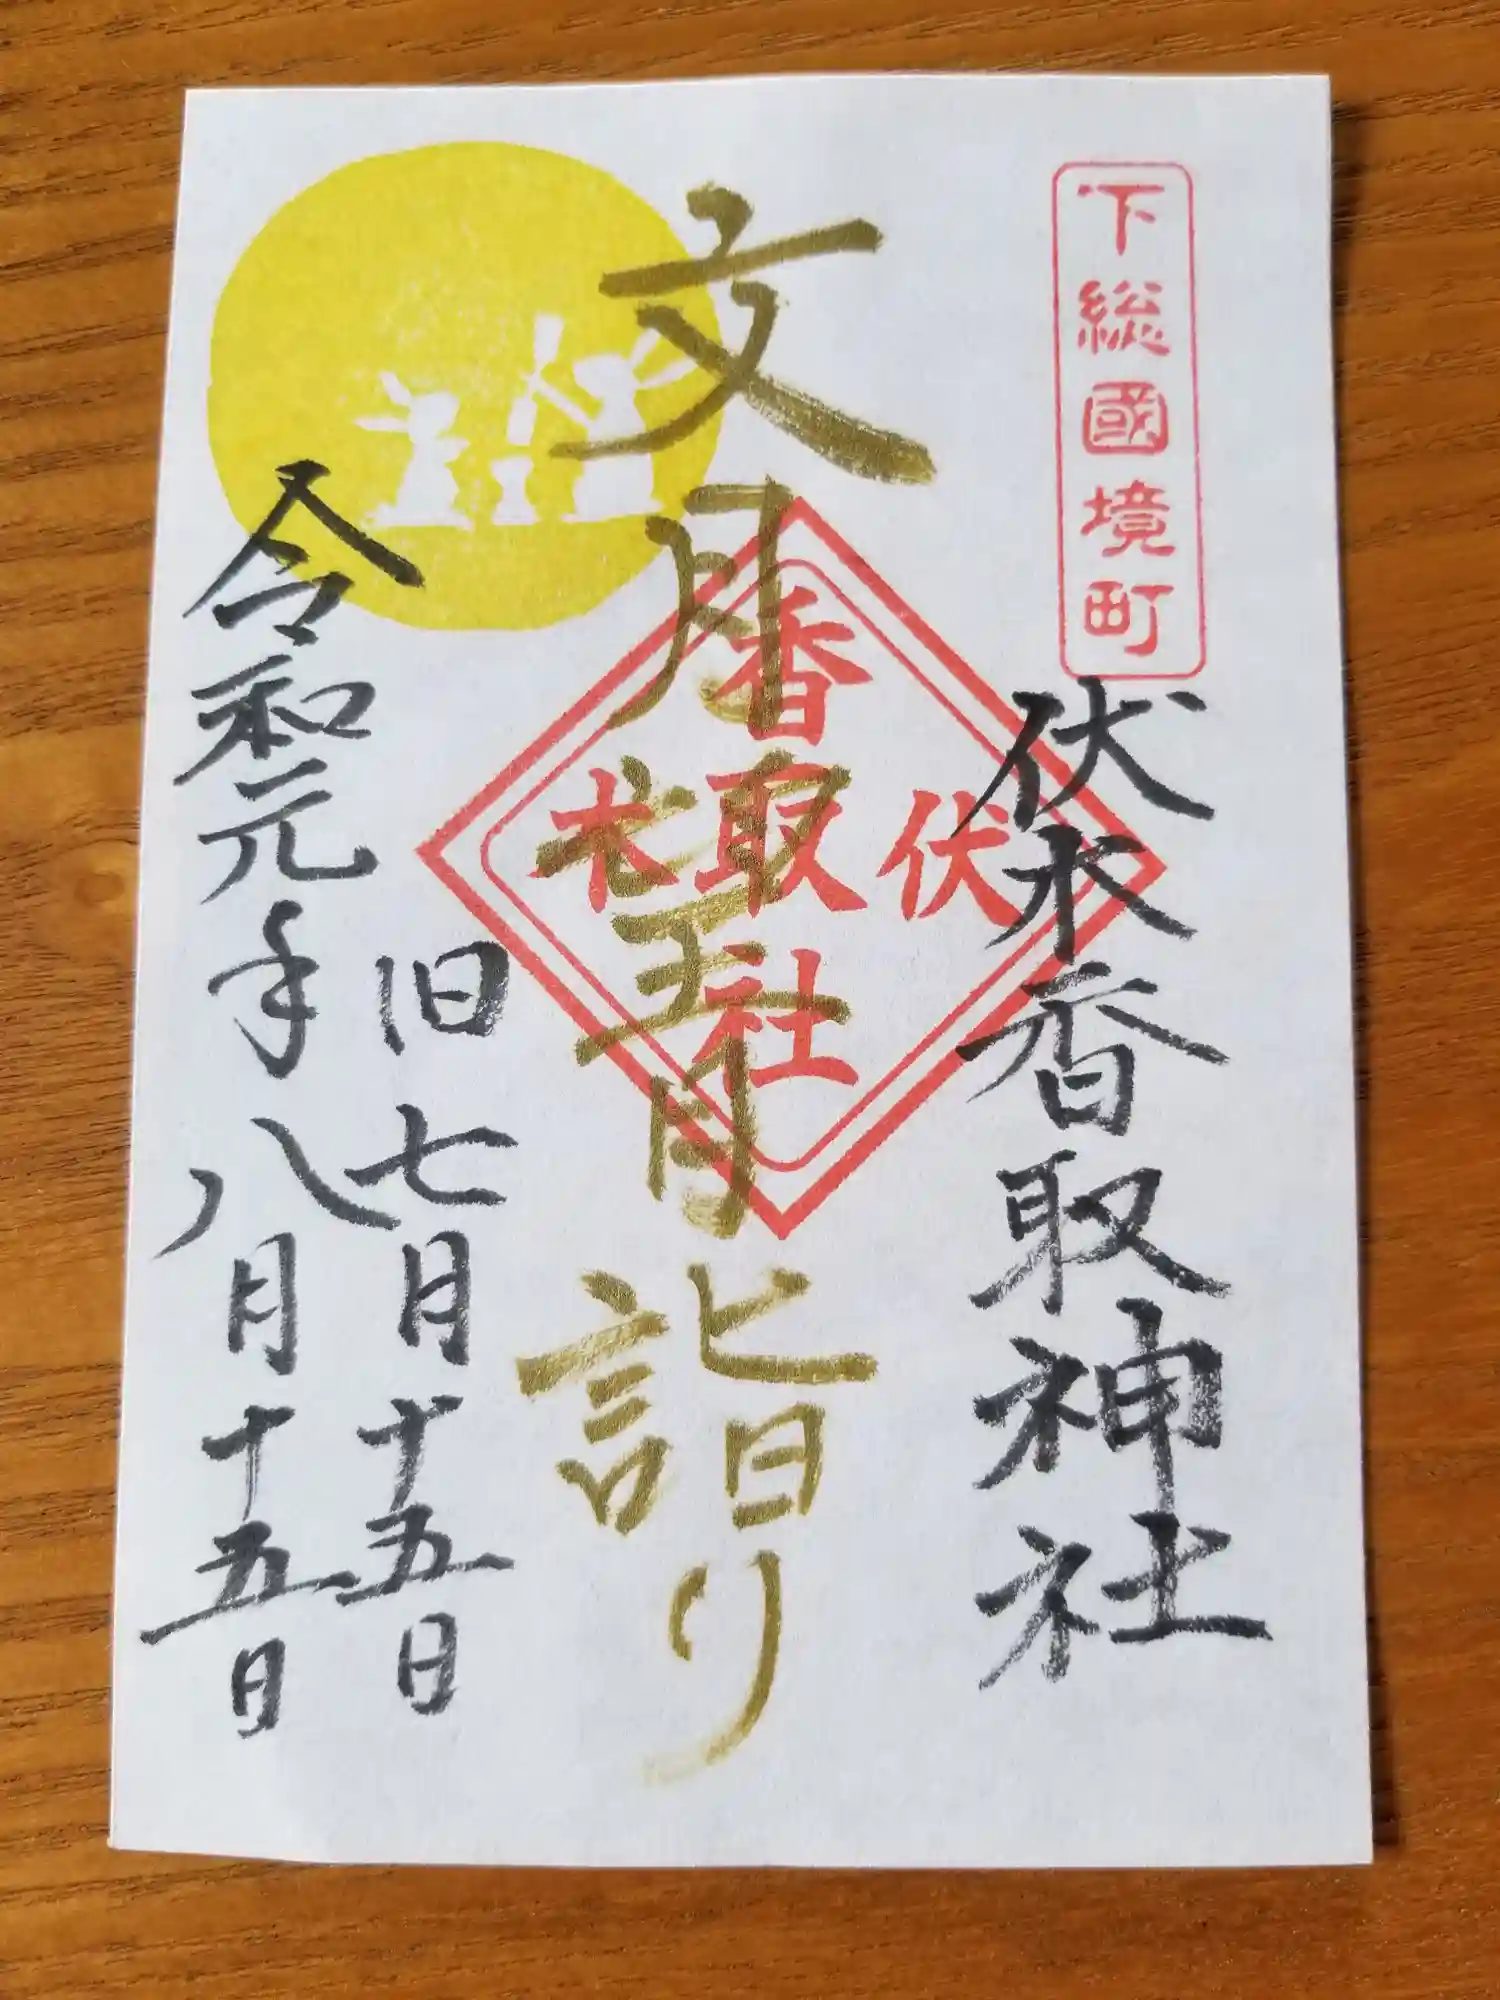 下総國境町
伏木香取神社
文月望月詣り
伏木
香取社
旧七月十五日
令和元年八月十五日